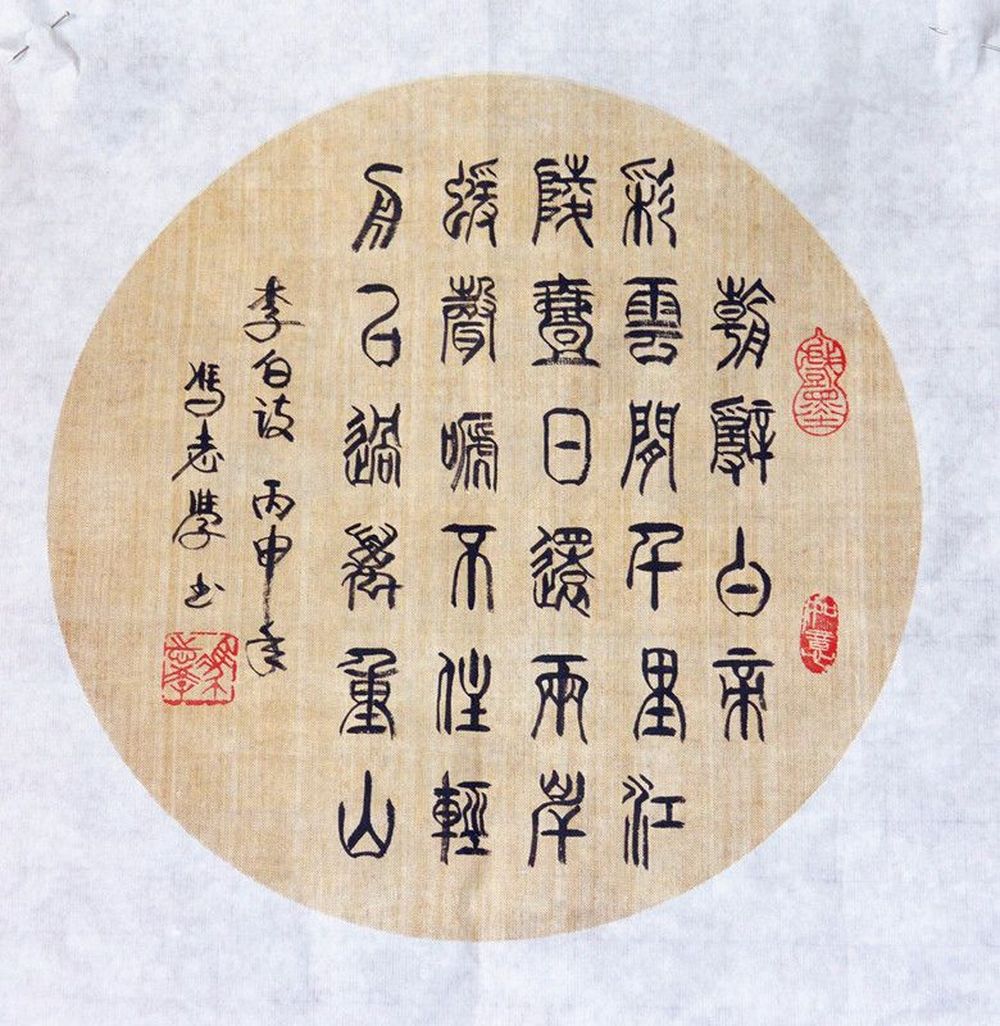 朝辭白帝
彩雲閒千里江
陵壹日還兩岸
蝯聲嗁不住輕
舟已過萬重山
李白诗 丙申年
馮志學书
如意